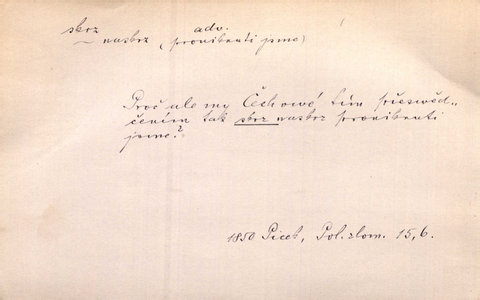 skrz adv.
~ naskrz (proniknuti jsme)
Proč ale my Čechowé tím přeswěd-
čením tak skrz naskrz proniknuti
jsme?
1850 Picek, Pol. zlom. 15, 6.